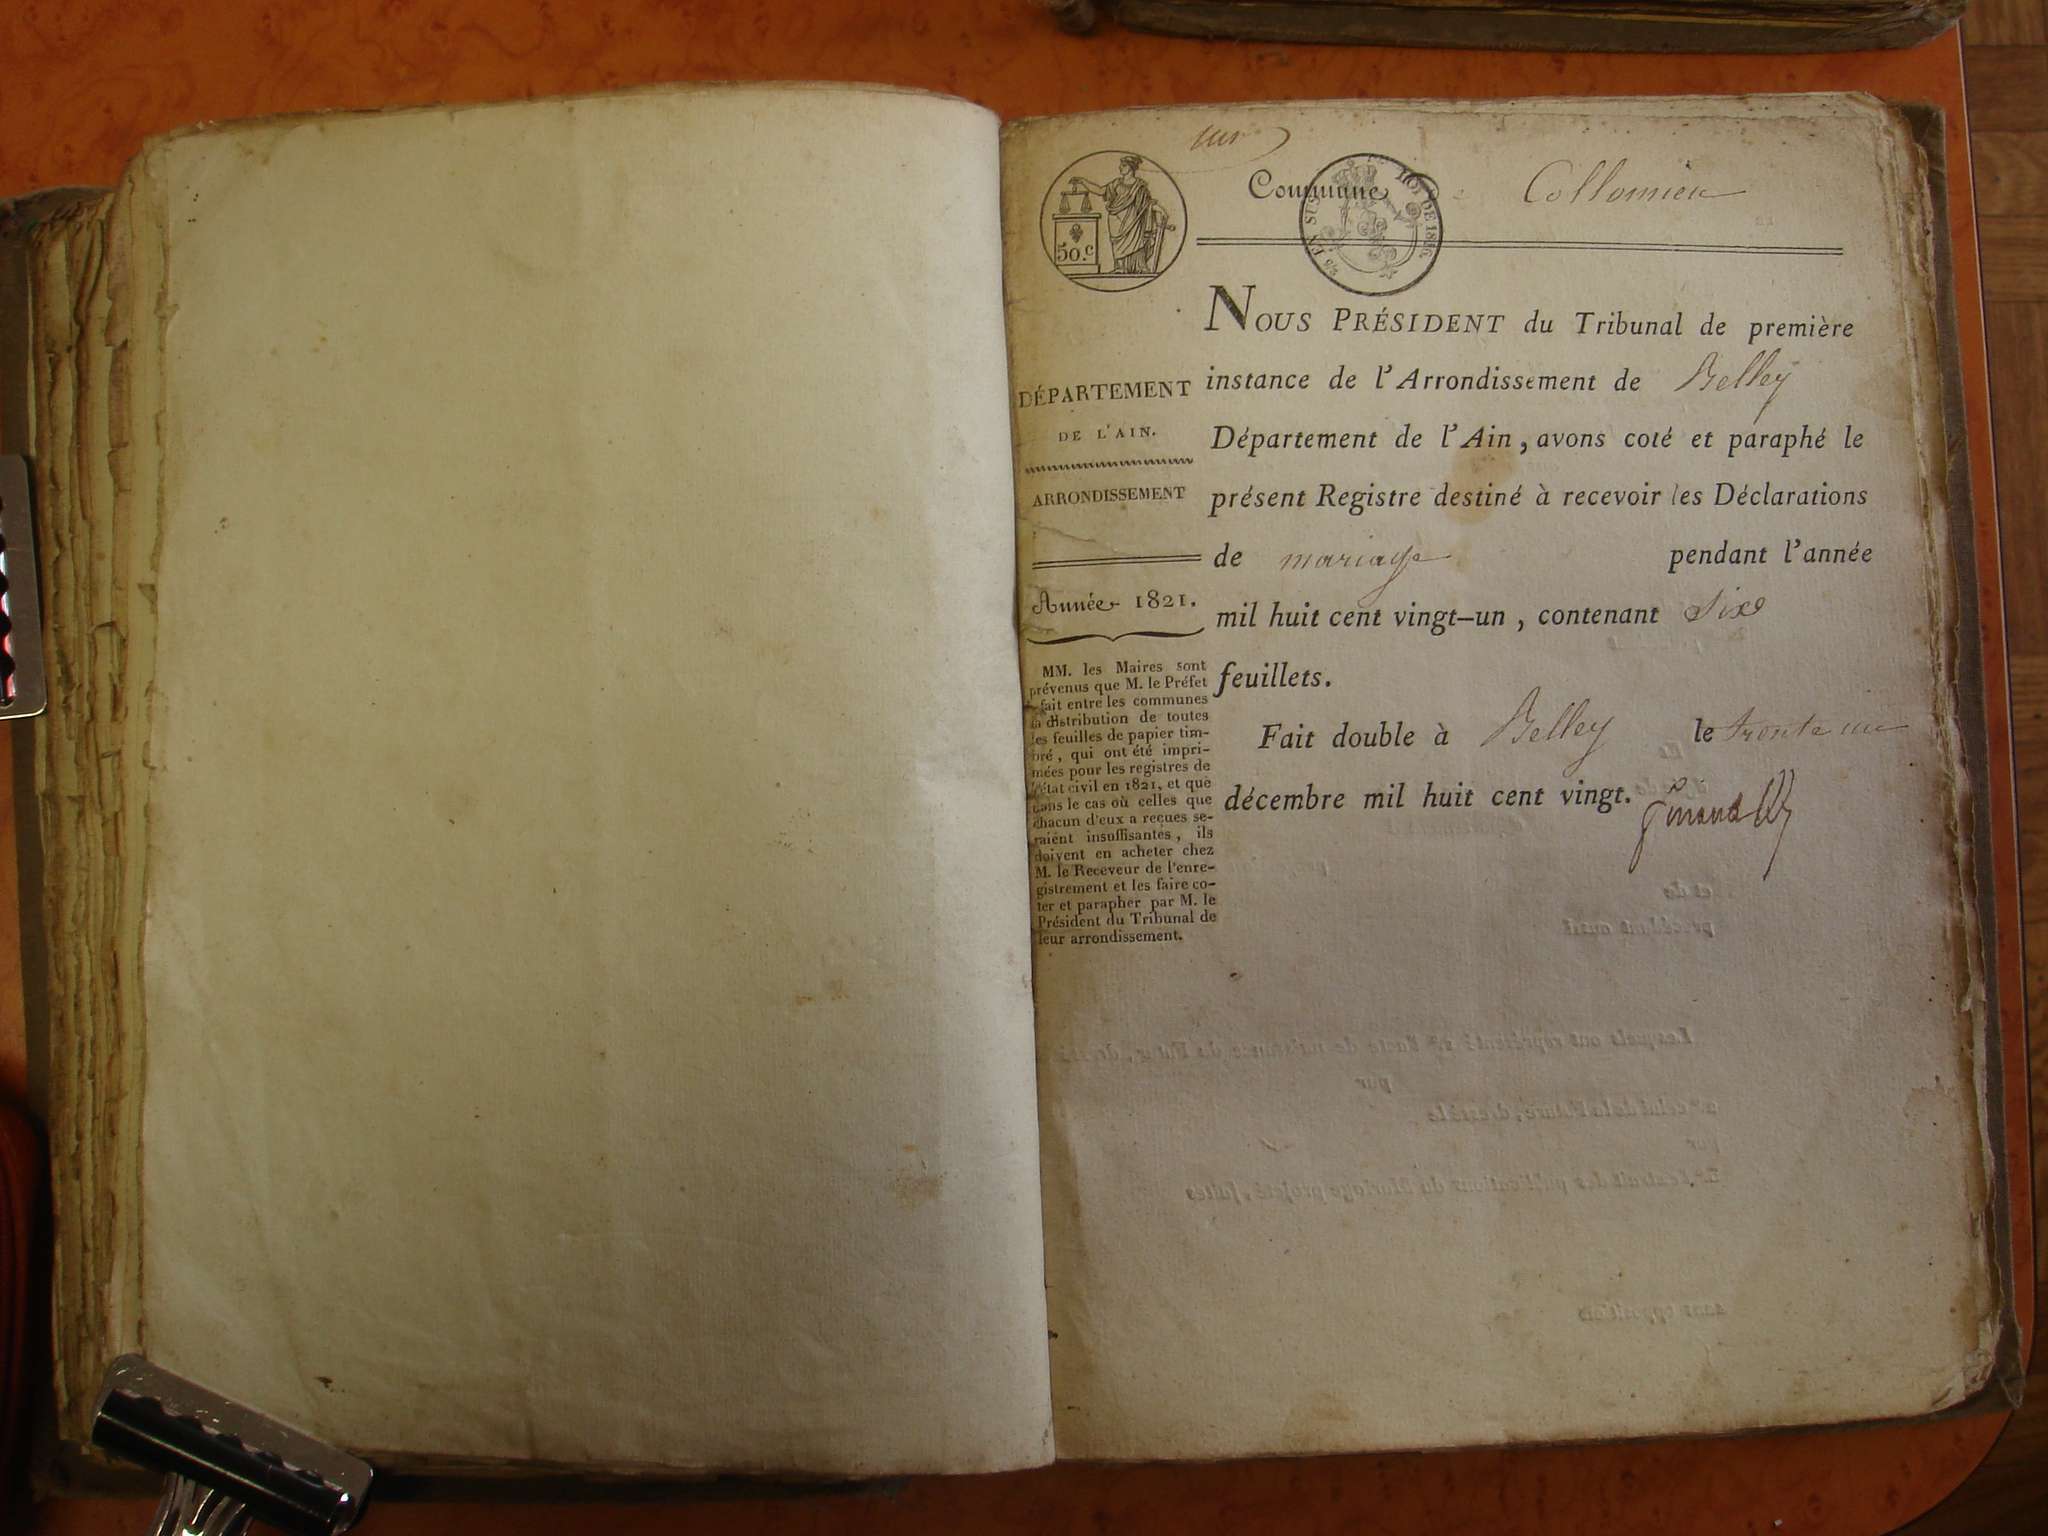 un
Commune de Collomieu
50.c
25 EN SUS
LOI DE 1816.
NOUS PRÉSIDENT du Tribunal de première
instance de l'Arrondissement de Belley
Département de l'Ain, avons coté et paraphé le
présent Registre destiné à recevoir les Déclarations
de mariage pendant l'année
mil huit cent vingt-un, contenant Six
feuillets.
Fait double à Belley le trente un
décembre mil huit cent vingt.
DÉPARTEMENT
DE L'AIN.
ARRONDISSEMENT
Année 1821.
MM. les Maires sont
prévenus que M. le Préfet
fait entre les communes
la distribution de toutes
les feuilles de papier tim-
bré, qui ont été impri-
mées pour les registres de
l'état civil en 1821, et que
dans le cas où celles que
chacun d'eux a reçues se-
raient insuffisantes, ils
doivent en acheter chez
M. le Receveur de l'enre-
gistrement et les faire co-
ter et parapher par M. le
Président du Tribunal de
leur arrondissement.